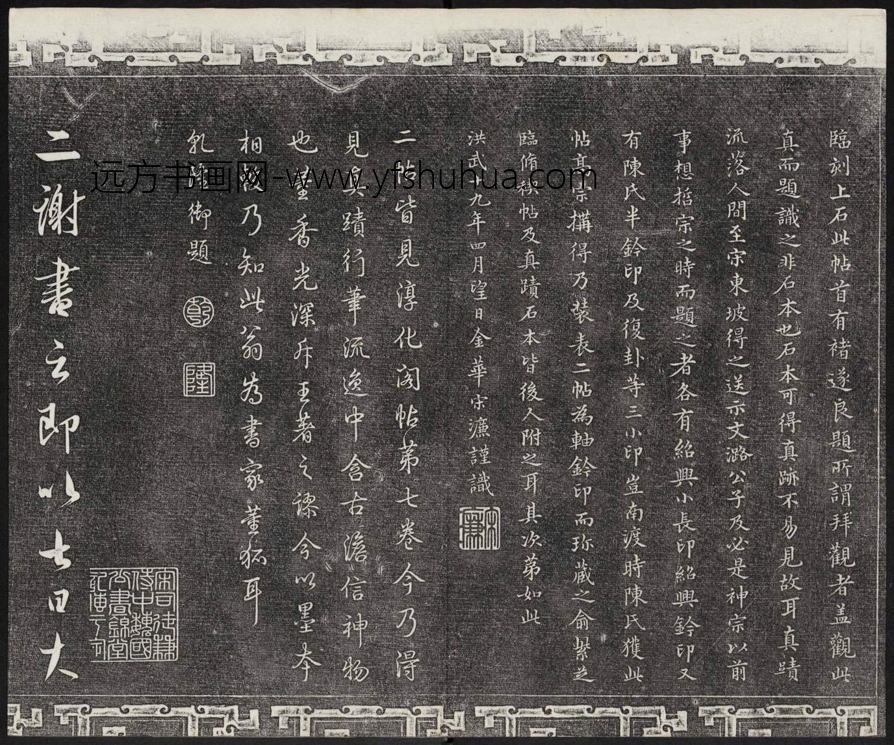 臨刻上石此帖首有褚遂良題所謂拜觀者盖觀此
真而題識之非石本也石本可得真跡不易見故耳真蹟
流落人間至宗東坡得之送示文潞公子及必是神宗以前
事想哲宗之時而題之者各有紹興小長印紹興鈐印又
有陳氏半鈐印及復卦等三小印豈南渡時陳氏獲此
帖高宗搆得乃裝表二帖為軸鈐印而珎藏之俞紫芝
臨脩禊帖及真蹟石本皆後人附之耳其次第如此
洪武九年四月望日金華宋濂謹識
宋濂
二帖皆見淳化閣帖第七卷今乃得
見真蹟行筆流逸中含古澹信神物
也董香光深斥王著之謬今以墨本
相較乃知此翁為書家董狐耳
乾隆御題
乾
隆
宋司徒兼
侍中魏國
公書錦堂
二謝書云即以七日大
远方书画网-www.yfshuhua.com